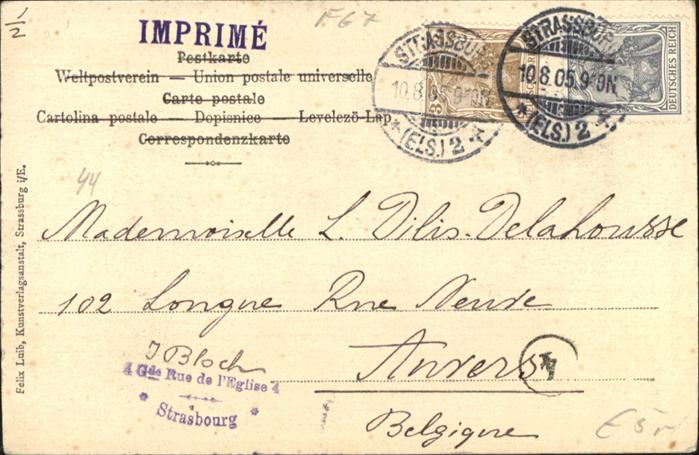 1/2
F67
IMPRIMÉ
Postkarte
Weltpostverein — Union postale universelle
Carte postale
Cartolina postale — Dopisnice — Levelező-Lap
Correspondenzkarte
STRASSBURG
10.8.
9-10N
* (ELS.) 2 *
STRASSBURG
10.8.05.9-10N
* (ELS.) 2 *
DEUTSCHES REICH
44
Mademoiselle L. Dilis-Delahousse
102 Longue Rue Neuve
Anvers
Belgique
J Bloch
4 Gde Rue de l'Eglise 4
* Strasbourg *
Felix Luib, Kunstverlagsanstalt, Strassburg i/E.